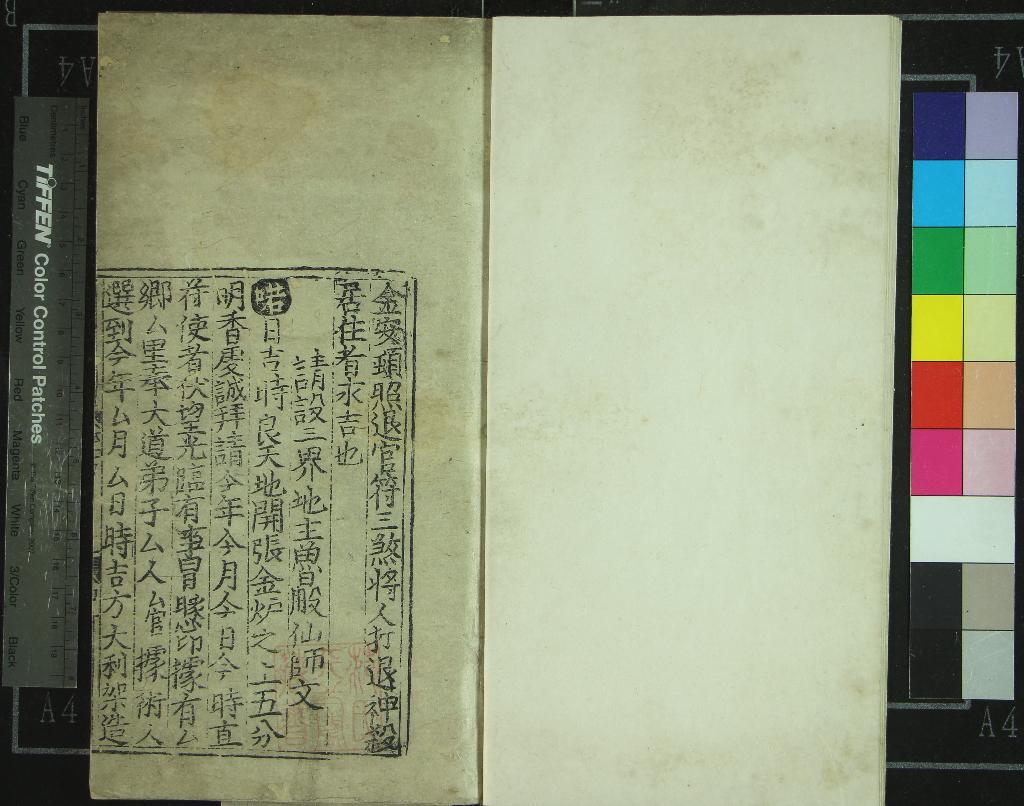 金安頭照退官符三煞将人打退神殺
居住者永吉也
請設三界地主魯般仙師文
日吉時良天地開張金炉之上五分
明香虔誠拜請今年今月今日今時直
符使者伏望光臨有事冒懇卬據有厶
鄉厶里奉大道弟子厶人厶官據術人
選到今年厶月厶日時吉方大利架造
TIFFEN Color Control Patches
Blue
Cyan
Green
Yellow
Red
Magenta
White
3/Color
Black
Centimetres
Inches
A4
A4
A4
A4